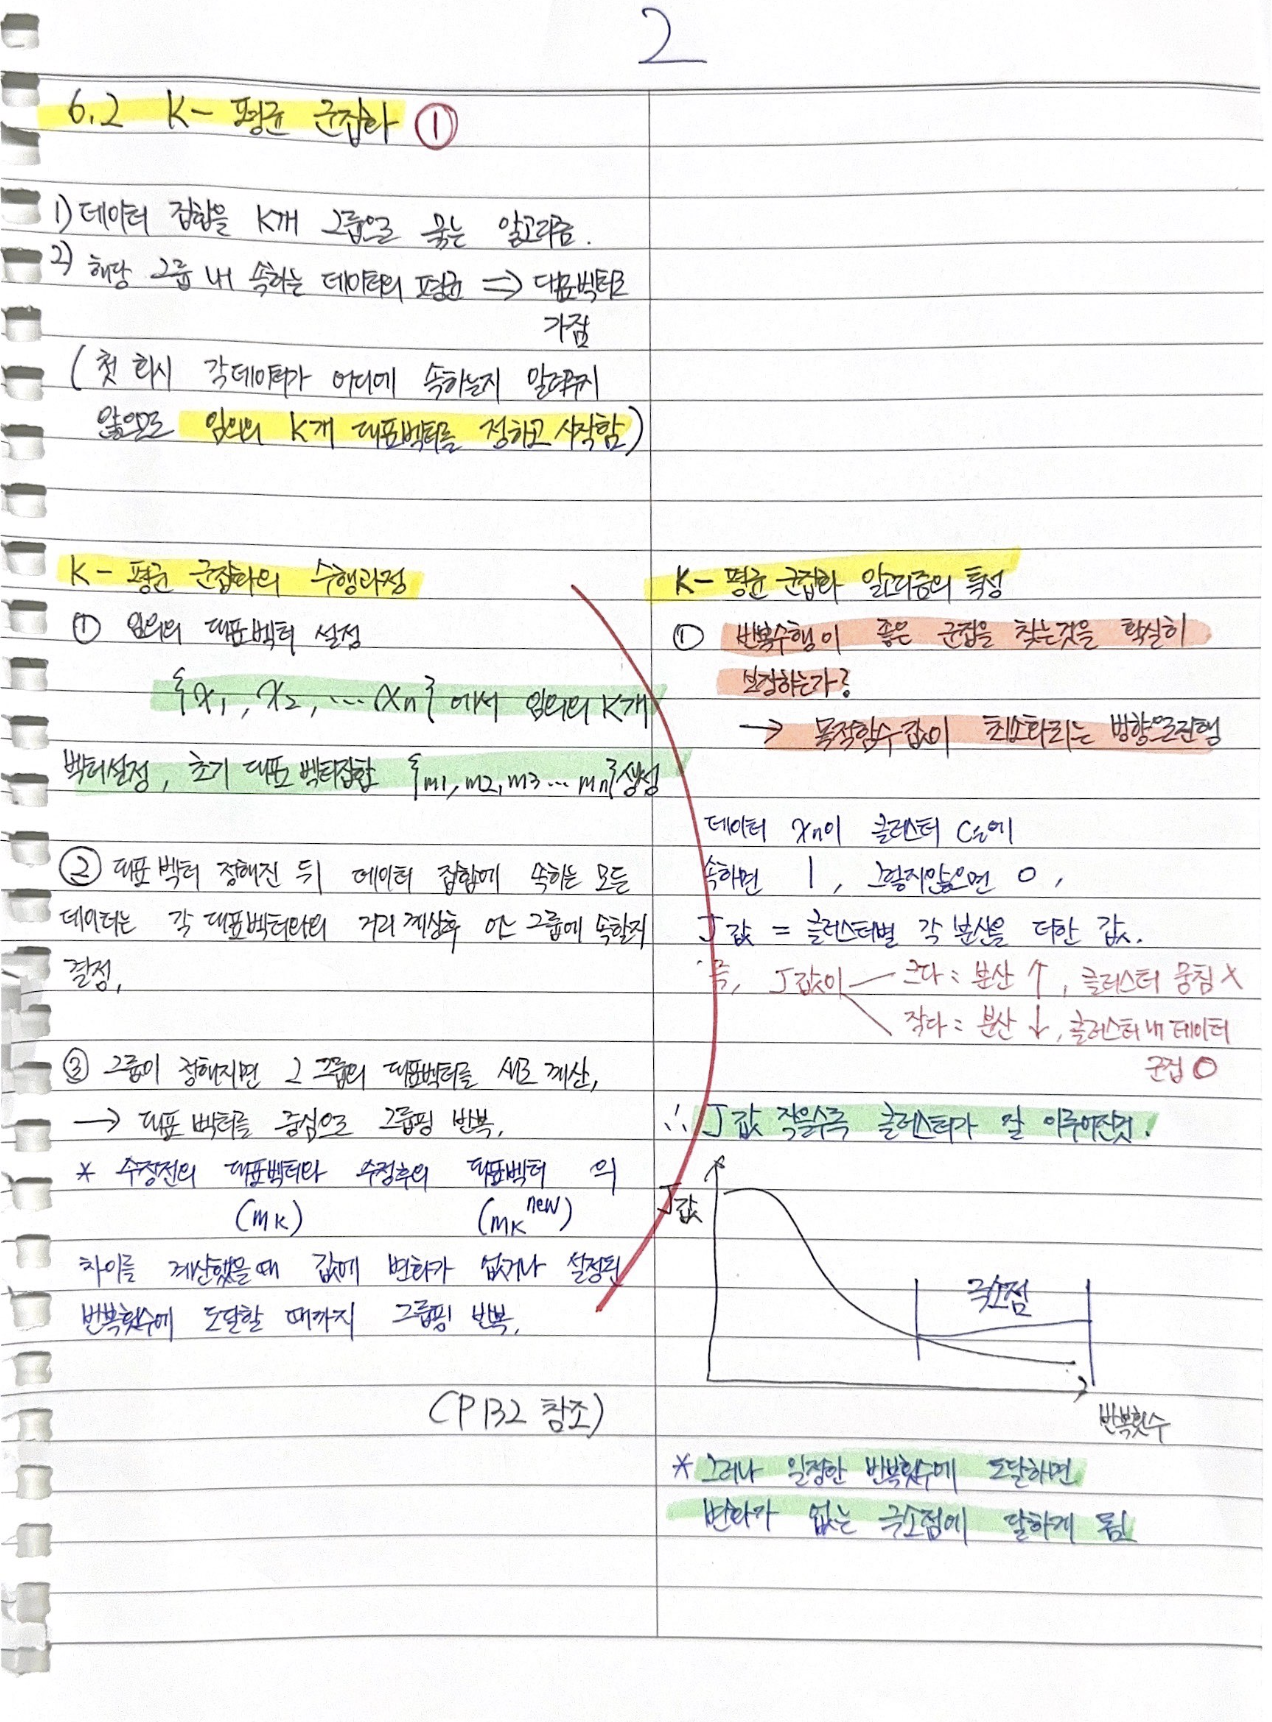 2
6.2 K- 평균 군집화 ①
1) 데이터 집합을 K개 그룹으로 묶는 알고리즘.
2) 해당 그룹 내 속하는 데이터의 평균 ⇒ 대표벡터로
가짐
( 첫 회시 각데이터가 어디에 속하는지 알려주지
않으므로 임의의 K개 대표벡터를 정하고 시작함)
K- 평균 군집화의 수행과정
① 임의의 대표벡터 설정
{x1, x2, ... xn} 에서 임의의 K개
벡터설정, 초기 대표 벡터집합 {m1, m2, m3 ... mn}생성
② 대표 벡터 정해진 뒤 데이터 집합에 속하는 모든
데이터는 각 대표벡터와의 거리 계산후 어느 그룹에 속할지
결정,
③ 그룹이 정해지면 그 그룹의 대표벡터를 새로 계산,
→ 대표 벡터를 중심으로 그룹핑 반복.
* 수정전의 대표벡터와 수정후의 대표벡터 의
(mK) (mK new)
차이를 계산했을때 값에 변화가 없거나 설정된
반복횟수에 도달할 때까지 그룹핑 반복.
(P 132 참조)
K- 평균 군집화 알고리즘의 특성
① 반복수행이 좋은 군집을 찾는것을 확실히
보장하는가?
→ 목적함수값이 최소화되는 방향으로진행
데이터 xn이 클러스터 Ci에
속하면 1, 그렇지않으면 0,
J 값 = 클러스터별 각 분산을 더한 값.
즉, J값이 크다 : 분산 ↑, 클러스터 뭉침 X
작다 : 분산 ↓, 클러스터 내 데이터
군집 O
∴ J값 작을수록 클러스터가 잘 이루어진것.
J값
극소점
반복횟수
* 그러나 일정한 반복횟수에 도달하면
변화가 없는 극소점에 달하게 됨.